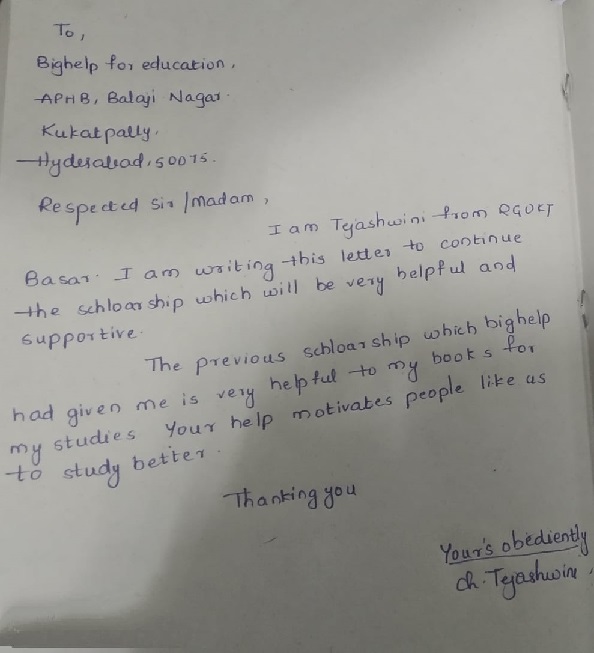 To,
Bighelp for education,
APHB, Balaji Nagar.
Kukatpally.
Hyderabad, 50075.
Respected sir/madam,
I am Tejashwini from RGUKT
Basar. I am writing this letter to continue
the schloarship which will be very helpful and
supportive.
The previous schloarship which bighelp
had given me is very helpful to my books for
my studies Your help motivates people like us
to study better.
Thanking you
Your's obediently
Ch. Tejashwini.